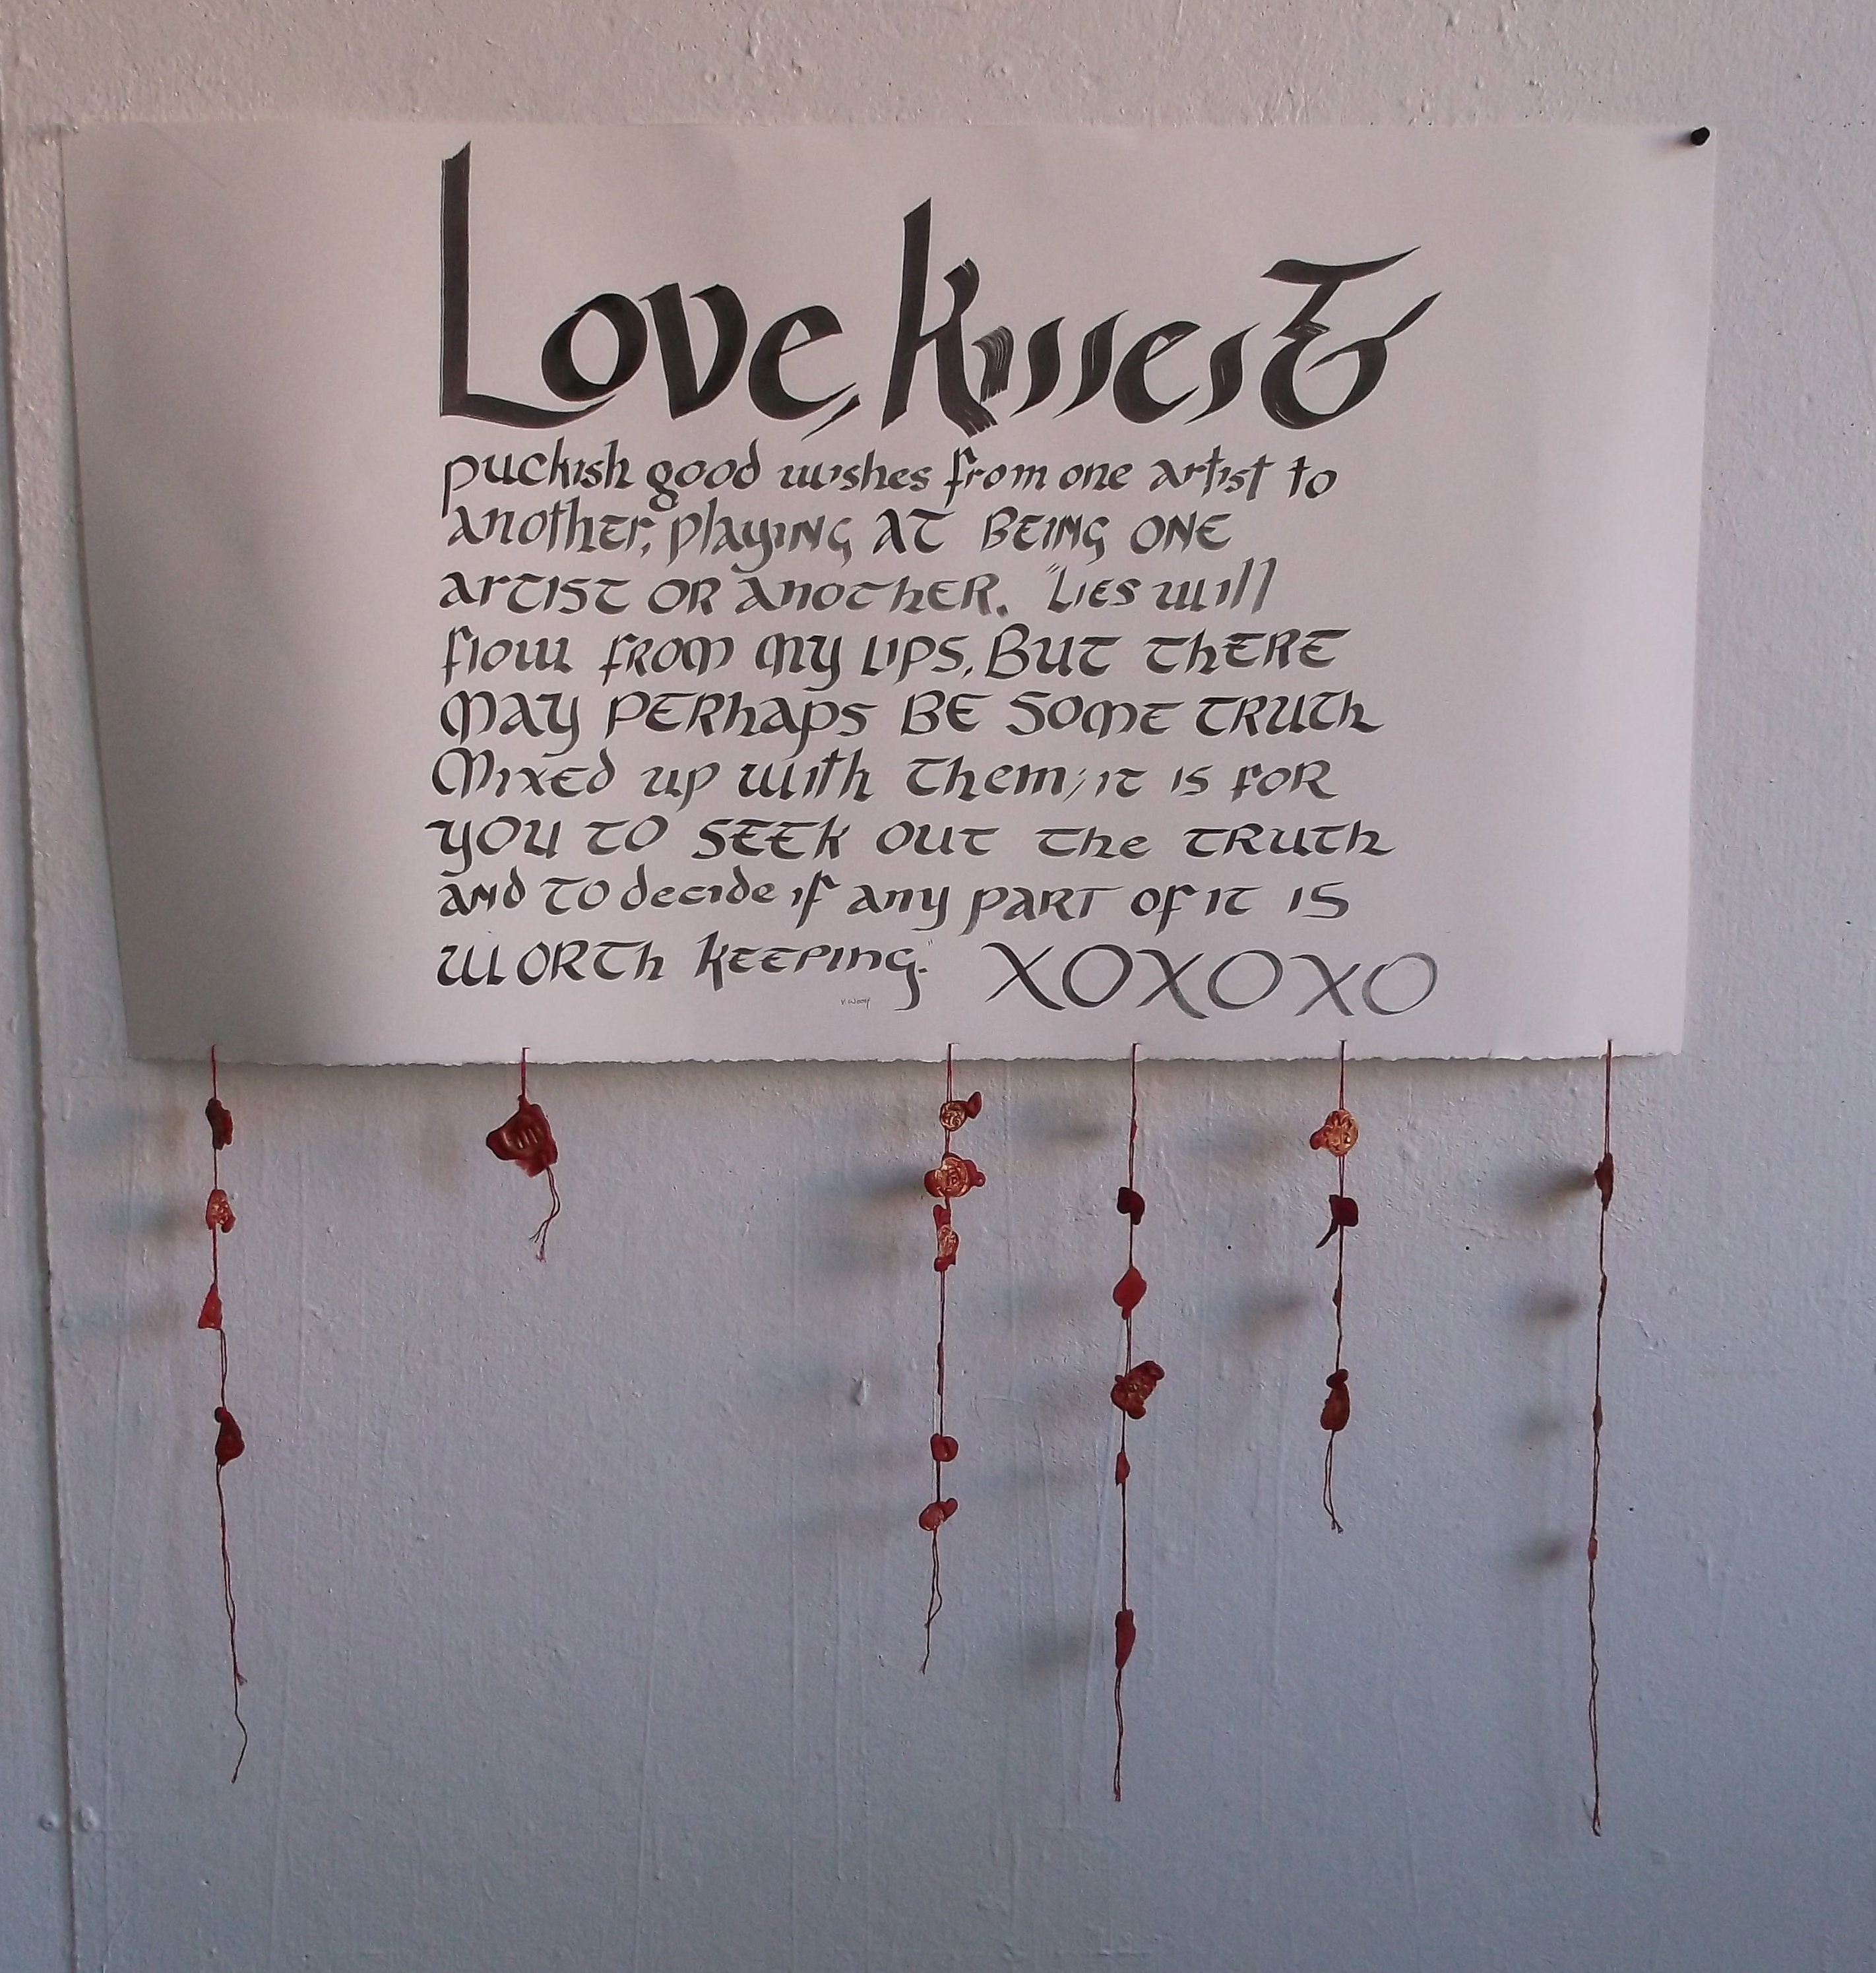 Love, Kisses &
puckish good wishes from one artist to
another, playing AT BEING ONE
artist OR another. "Lies will
flow from my lips, But there
may perhaps BE some truth
Mixed up with them; it is for
you to SEEK out the truth
and to decide if any part of it is
worth keeping." XOXOXO
V. Woolf